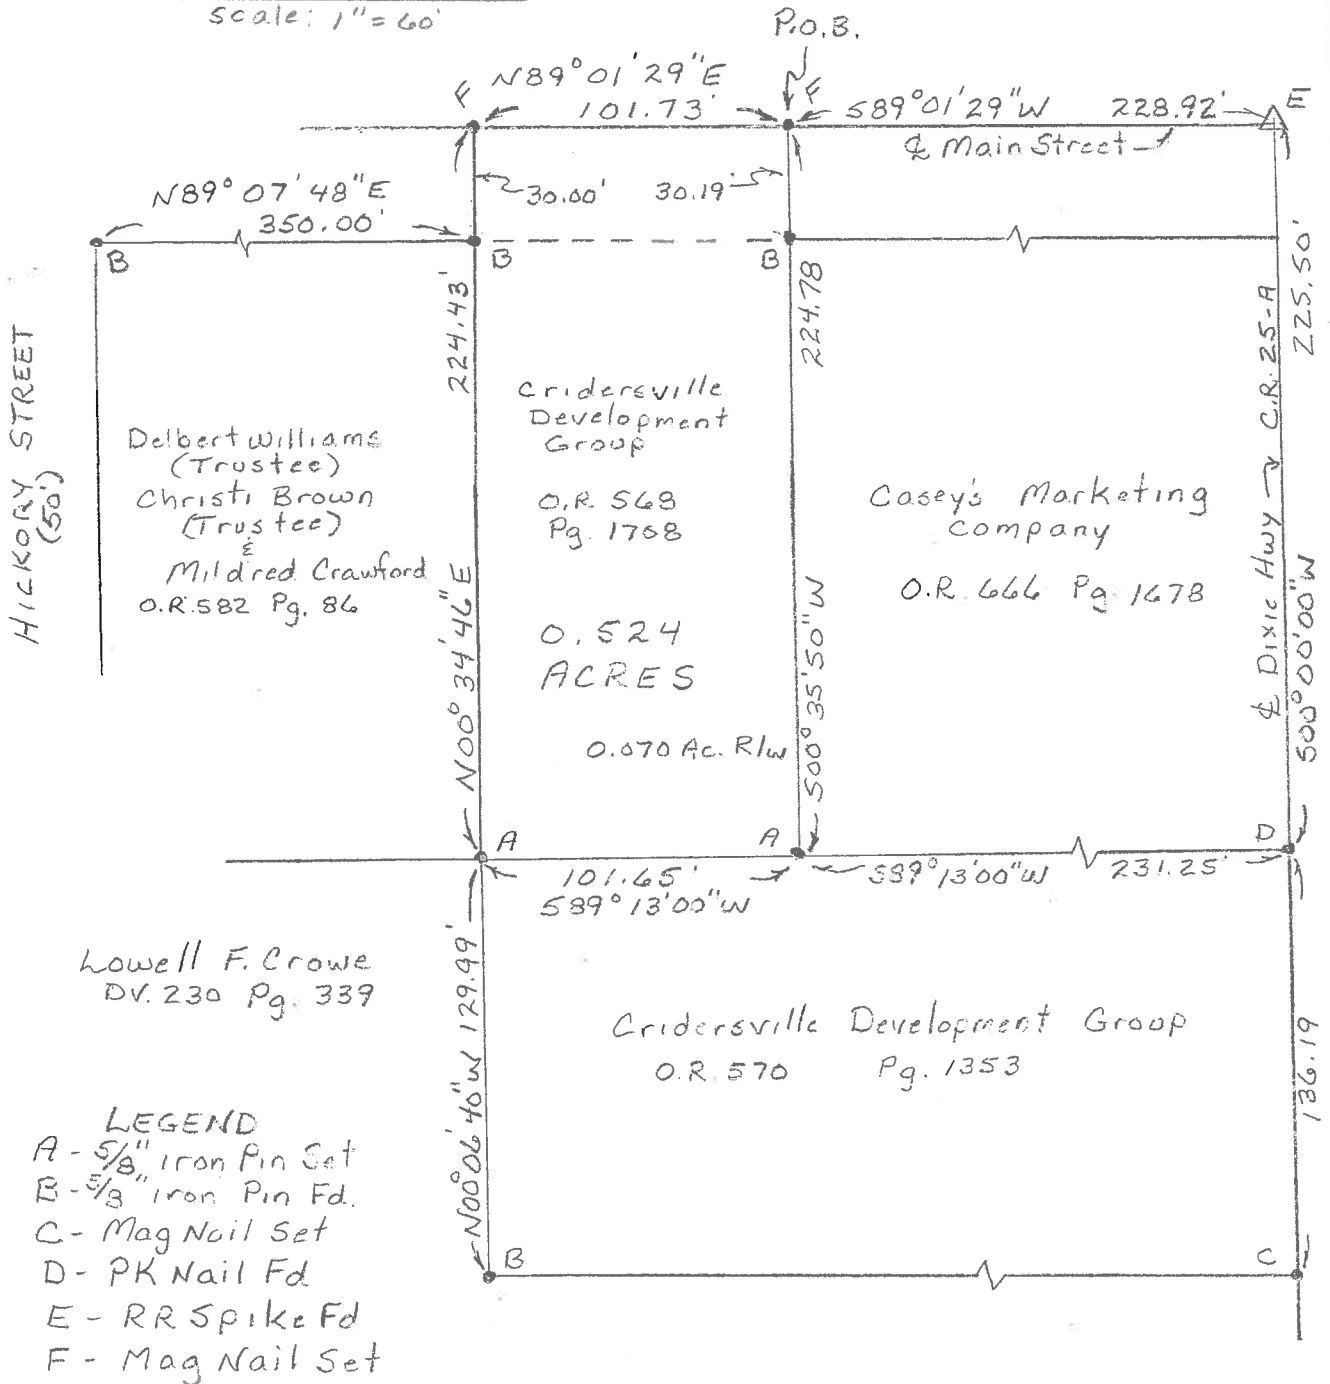 scale: 1"=60'
P.O.B.
N89°01'29"E
101.73'
F
F
S89°01'29"W 228.92'
E
℄ Main Street
30.00'
30.19'
N89°07'48"E
350.00'
B
B
B
HICKORY STREET
(50')
224.43'
N00°34'46"E
224.78
S00°35'50"W
℄ Dixie Hwy → C.R. 25-A
225.50'
S00°00'00"W
Delbert Williams
(Trustee)
Christi Brown
(Trustee)
&
Mildred Crawford
O.R. 582 Pg. 86
Cridersville
Development
Group
O.R. 568
Pg. 1768
0.524
ACRES
0.070 Ac. R/w
Casey's Marketing
Company
O.R. 666 Pg 1678
A
A
D
101.65'
S89°13'00"W
S89°13'00"W 231.25'
Lowell F. Crowe
DV. 230 Pg. 339
N00°06'40"W 129.99'
Cridersville Development Group
O.R. 570 Pg. 1353
136.19
B
C
LEGEND
A - 5/8" iron Pin Set
B - 5/8" iron Pin Fd.
C - Mag Nail Set
D - PK Nail Fd
E - RR Spike Fd
F - Mag Nail Set